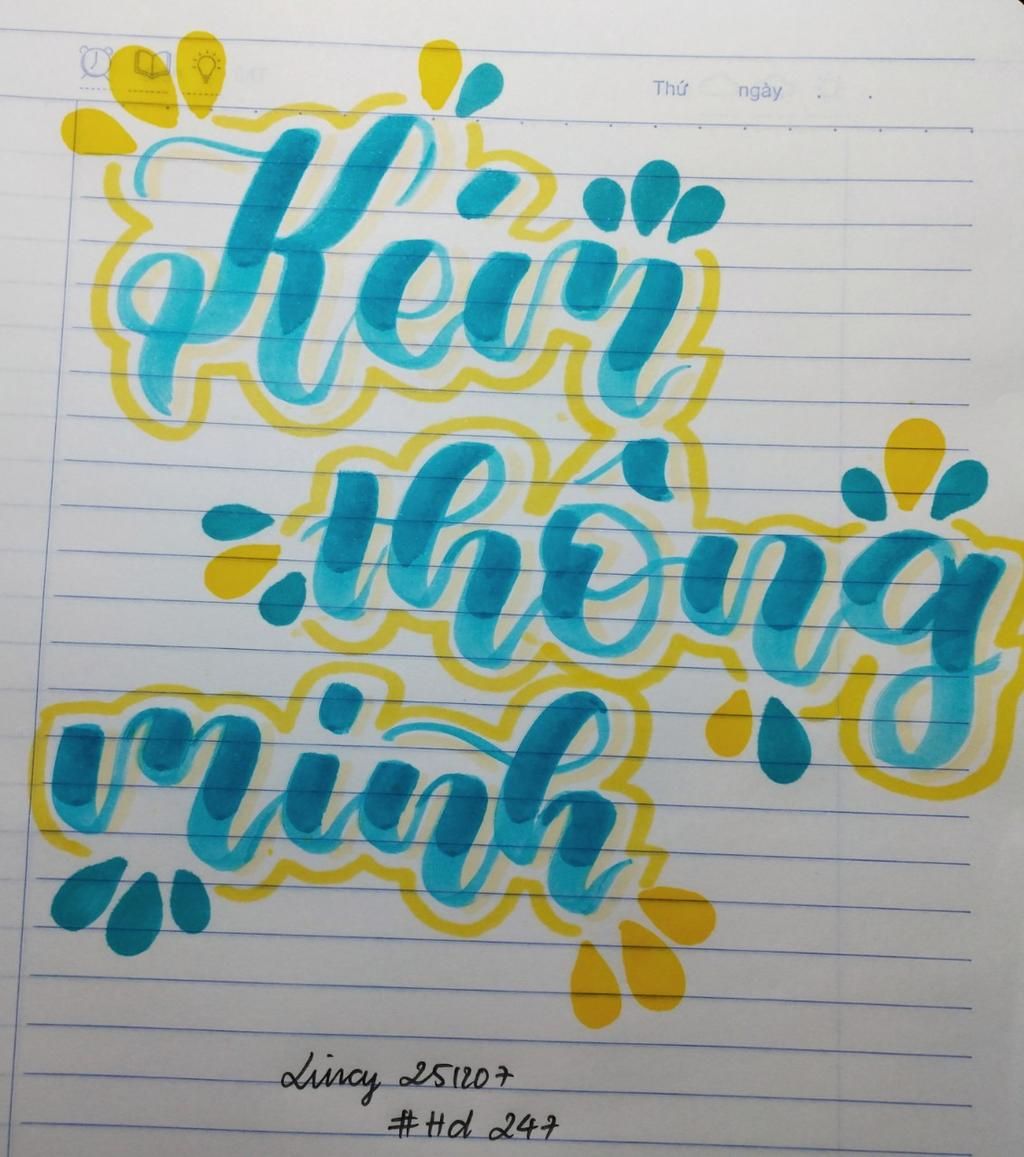 Thứ ngày . .
Kém
thông
minh
Lincy 251207
#Hd 247